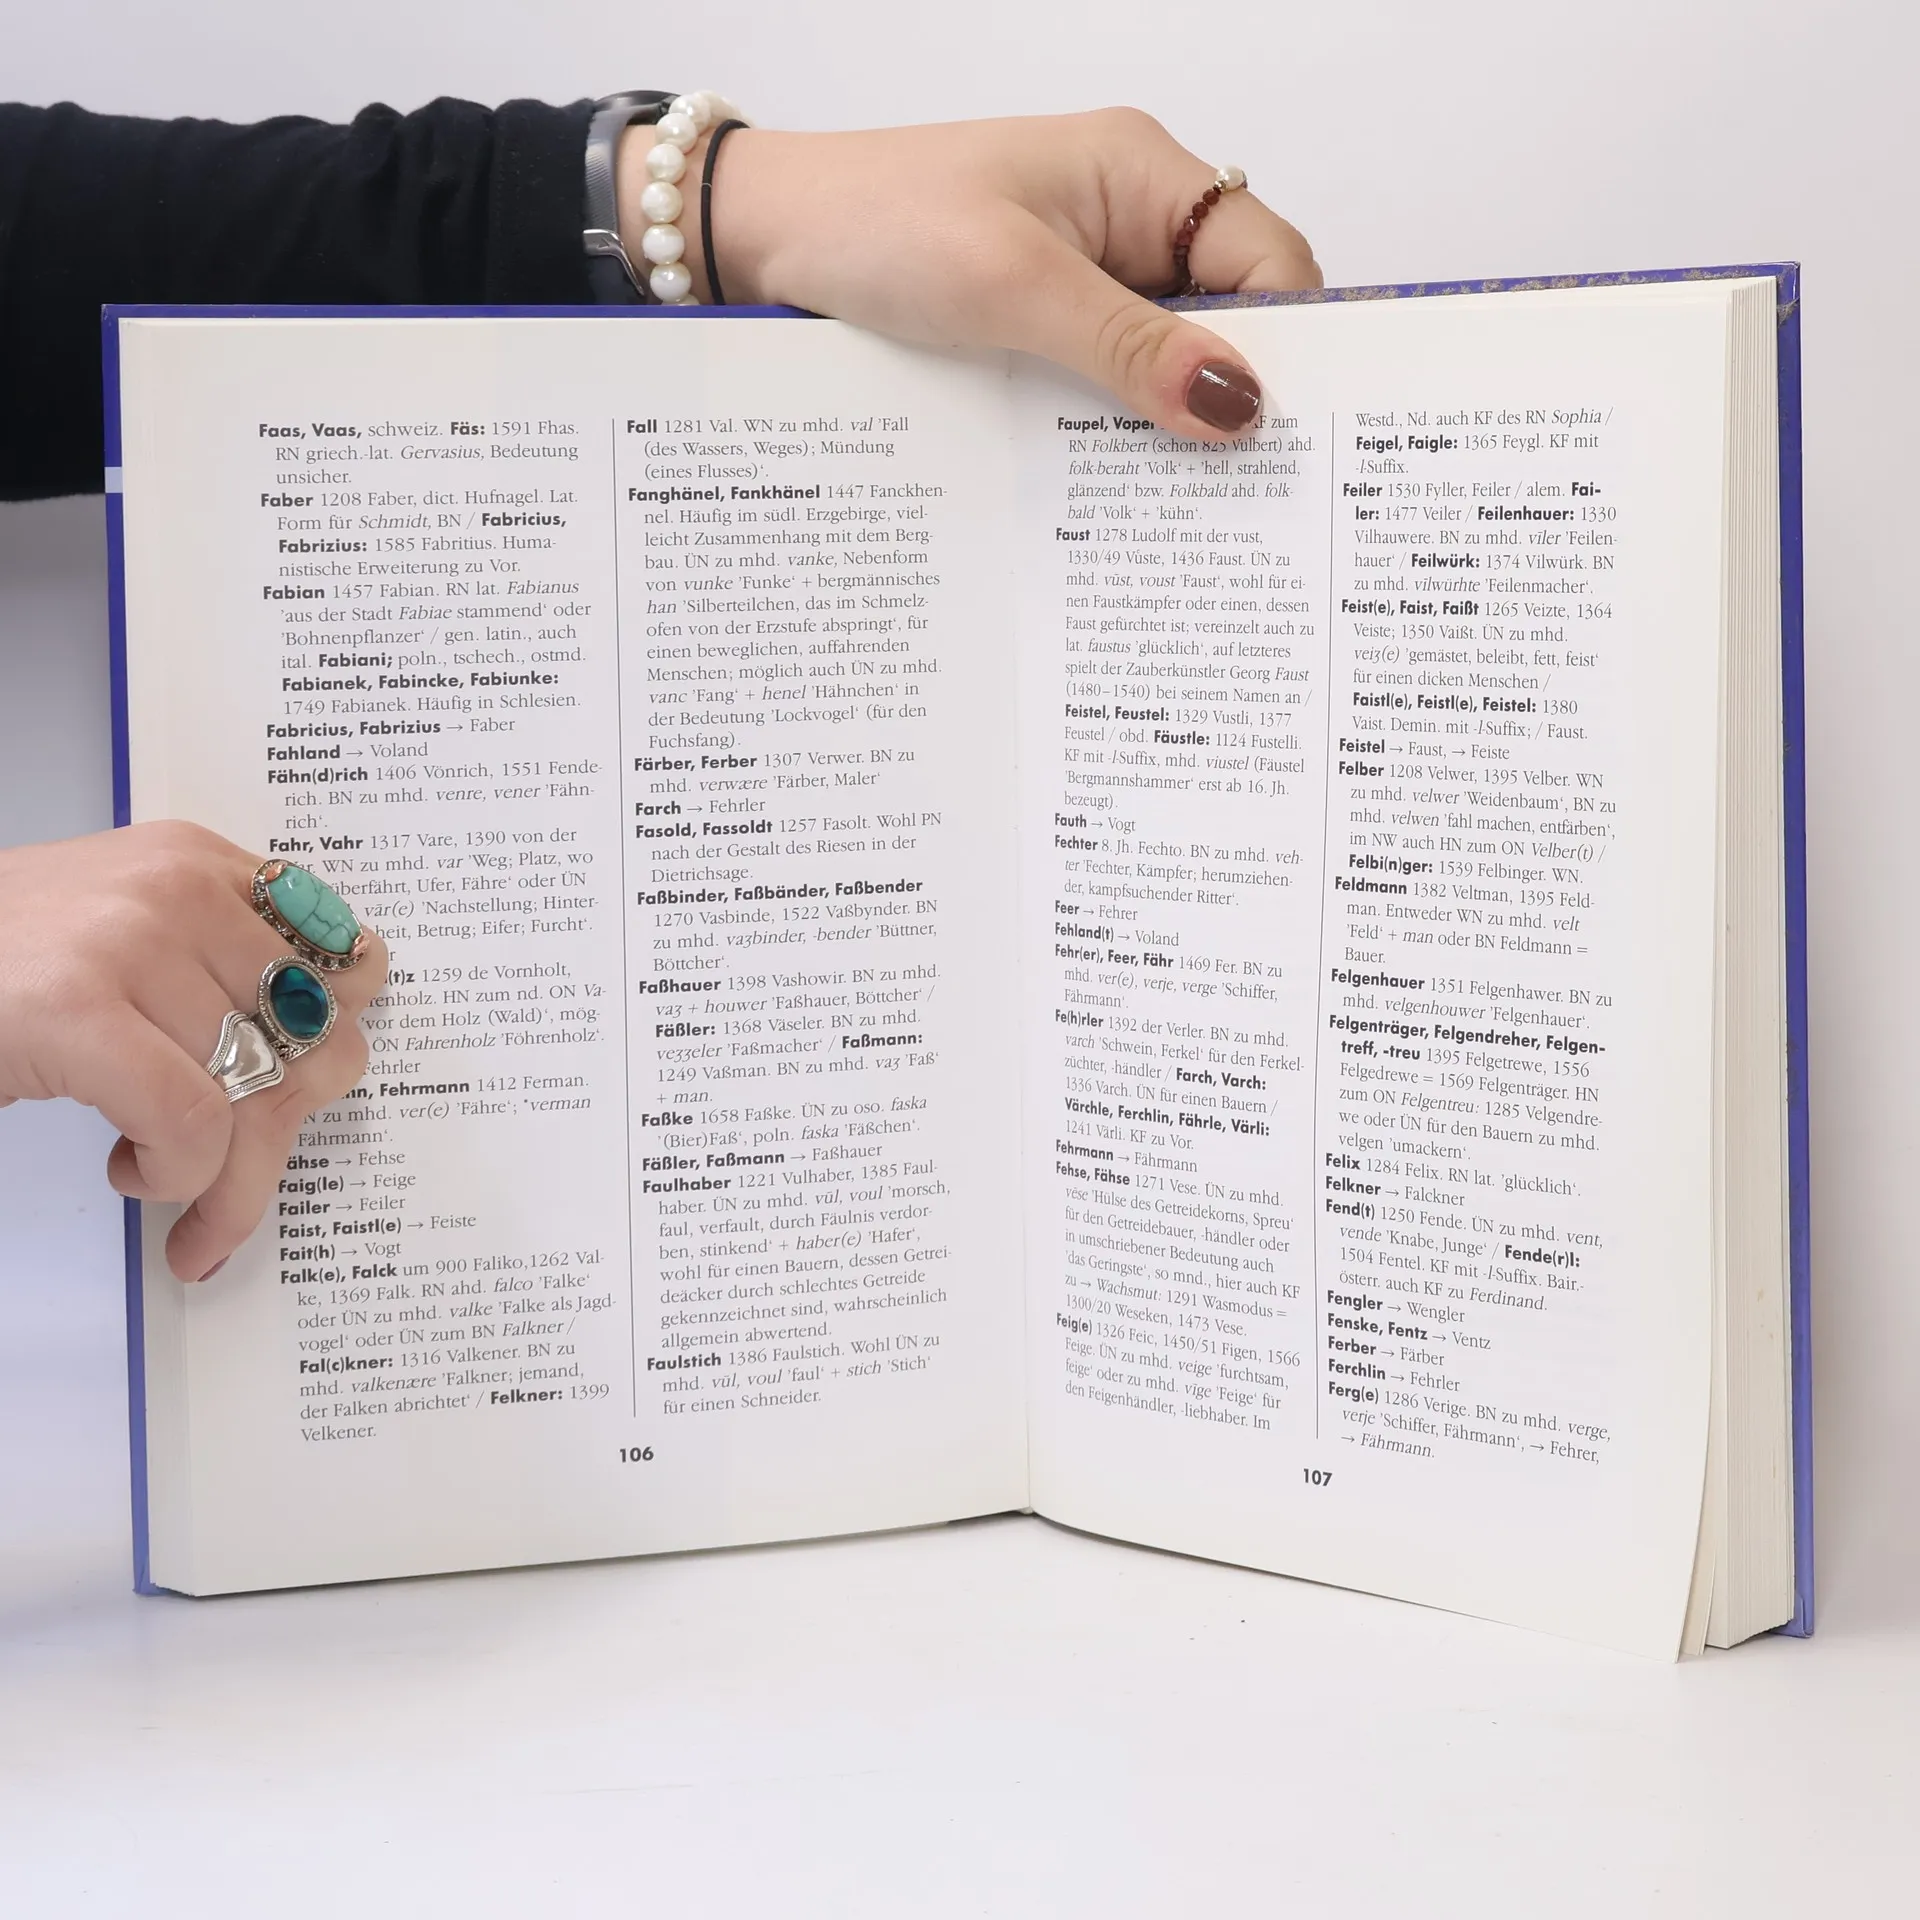 Faas, Vaas, schweiz. Fäs: 1591 Fhas.
RN griech.-lat. Gervasius, Bedeutung
unsicher.
Faber 1208 Faber, dict. Hufnagel. Lat.
Form für Schmidt, BN / Fabricius,
Fabrizius: 1585 Fabritius. Huma-
nistische Erweiterung zu Vor.
Fabian 1457 Fabian. RN lat. Fabianus
'aus der Stadt Fabiae stammend‘ oder
'Bohnenpflanzer‘ / gen. latin., auch
ital. Fabiani; poln., tschech., ostmd.
Fabianek, Fabincke, Fabiunke:
1749 Fabianek. Häufig in Schlesien.
Fabricius, Fabrizius → Faber
Fahland → Voland
Fähn(d)rich 1406 Vönrich, 1551 Fende-
rich. BN zu mhd. venre, vener 'Fähn-
rich‘.
Fahr, Vahr 1317 Vare, 1390 von der
WN zu mhd. var 'Weg; Platz, wo
überfährt, Ufer, Fähre‘ oder ÜN
vār(e) 'Nachstellung; Hinter-
heit, Betrug; Eifer; Furcht‘.
(t)z 1259 de Vornholt,
enholz. HN zum nd. ON Va-
'vor dem Holz (Wald)‘, mög-
ÖN Fahrenholz 'Föhrenholz‘.
Fehrler
nn, Fehrmann 1412 Ferman.
zu mhd. ver(e) 'Fähre‘; *verman
Fährmann‘.
ähse → Fehse
Faig(le) → Feige
Failer → Feiler
Faist, Faistl(e) → Feiste
Fait(h) → Vogt
Falk(e), Falck um 900 Faliko,1262 Val-
ke, 1369 Falk. RN ahd. falco 'Falke‘
oder ÜN zu mhd. valke 'Falke als Jagd-
vogel‘ oder ÜN zum BN Falkner /
Fal(c)kner: 1316 Valkener. BN zu
mhd. valkenære 'Falkner; jemand,
der Falken abrichtet‘ / Felkner: 1399
Velkener.
Fall 1281 Val. WN zu mhd. val 'Fall
(des Wassers, Weges); Mündung
(eines Flusses)‘.
Fanghänel, Fankhänel 1447 Fanckhen-
nel. Häufig im südl. Erzgebirge, viel-
leicht Zusammenhang mit dem Berg-
bau. ÜN zu mhd. vanke, Nebenform
von vunke 'Funke‘ + bergmännisches
han 'Silberteilchen, das im Schmelz-
ofen von der Erzstufe abspringt‘, für
einen beweglichen, auffahrenden
Menschen; möglich auch ÜN zu mhd.
vanc 'Fang‘ + henel 'Hähnchen‘ in
der Bedeutung 'Lockvogel‘ (für den
Fuchsfang).
Färber, Ferber 1307 Verwer. BN zu
mhd. verwære 'Färber, Maler‘
Farch → Fehrler
Fasold, Fassoldt 1257 Fasolt. Wohl PN
nach der Gestalt des Riesen in der
Dietrichsage.
Faßbinder, Faßbänder, Faßbender
1270 Vasbinde, 1522 Vaßbynder. BN
zu mhd. vaʒbinder, -bender 'Büttner,
Böttcher‘.
Faßhauer 1398 Vashowir. BN zu mhd.
vaʒ + houwer 'Faßhauer, Böttcher‘ /
Fäßler: 1368 Väseler. BN zu mhd.
veʒʒeler 'Faßmacher‘ / Faßmann:
1249 Vaßman. BN zu mhd. vaʒ 'Faß‘
+ man.
Faßke 1658 Faßke. ÜN zu oso. faska
'(Bier)Faß‘, poln. faska 'Fäßchen‘.
Fäßler, Faßmann → Faßhauer
Faulhaber 1221 Vulhaber, 1385 Faul-
haber. ÜN zu mhd. vūl, voul 'morsch,
faul, verfault, durch Fäulnis verdor-
ben, stinkend‘ + haber(e) 'Hafer‘,
wohl für einen Bauern, dessen Getrei-
deäcker durch schlechtes Getreide
gekennzeichnet sind, wahrscheinlich
allgemein abwertend.
Faulstich 1386 Faulstich. Wohl ÜN zu
mhd. vūl, voul 'faul‘ + stich 'Stich‘
für einen Schneider.
106
Faupel, Vopel KF zum
RN Folkbert (schon 825 Vulbert) ahd.
folk-beraht 'Volk‘ + 'hell, strahlend,
glänzend‘ bzw. Folkbald ahd. folk-
bald 'Volk‘ + 'kühn‘.
Faust 1278 Ludolf mit der vust,
1330/49 Vůste, 1436 Faust. ÜN zu
mhd. vūst, voust 'Faust‘, wohl für ei-
nen Faustkämpfer oder einen, dessen
Faust gefürchtet ist; vereinzelt auch zu
lat. faustus 'glücklich‘, auf letzteres
spielt der Zauberkünstler Georg Faust
(1480–1540) bei seinem Namen an /
Feistel, Feustel: 1329 Vustli, 1377
Feustel / obd. Fäustle: 1124 Fustelli.
KF mit -l-Suffix, mhd. viustel (Fäustel
'Bergmannshammer‘ erst ab 16. Jh.
bezeugt).
Fauth → Vogt
Fechter 8. Jh. Fechto. BN zu mhd. veh-
ter 'Fechter, Kämpfer; herumziehen-
der, kampfsuchender Ritter‘.
Feer → Fehrer
Fehland(t) → Voland
Fehr(er), Feer, Fähr 1469 Fer. BN zu
mhd. ver(e), verje, verge 'Schiffer,
Fährmann‘.
Fe(h)rler 1392 der Verler. BN zu mhd.
varch 'Schwein, Ferkel‘ für den Ferkel-
züchter, -händler / Farch, Varch:
1336 Varch. ÜN für einen Bauern /
Värchle, Ferchlin, Fährle, Värli:
1241 Värli. KF zu Vor.
Fehrmann → Fährmann
Fehse, Fähse 1271 Vese. ÜN zu mhd.
vëse 'Hülse des Getreidekorns, Spreu‘
für den Getreidebauer, -händler oder
in umschriebener Bedeutung auch
'das Geringste‘, so mnd., hier auch KF
zu → Wachsmut: 1291 Wasmodus =
1300/20 Weseken, 1473 Vese.
Feig(e) 1326 Feic, 1450/51 Figen, 1566
Feige. ÜN zu mhd. veige 'furchtsam,
feige‘ oder zu mhd. vīge 'Feige‘ für
den Feigenhändler, -liebhaber. Im
Westd., Nd. auch KF des RN Sophia /
Feigel, Faigle: 1365 Feygl. KF mit
-l-Suffix.
Feiler 1530 Fyller, Feiler / alem. Fai-
ler: 1477 Veiler / Feilenhauer: 1330
Vilhauwere. BN zu mhd. vīler 'Feilen-
hauer‘ / Feilwürk: 1374 Vilwürk. BN
zu mhd. vīlwürhte 'Feilenmacher‘.
Feist(e), Faist, Faißt 1265 Veizte, 1364
Veiste; 1350 Vaißt. ÜN zu mhd.
veiʒ(e) 'gemästet, beleibt, fett, feist‘
für einen dicken Menschen /
Faistl(e), Feistl(e), Feistel: 1380
Vaist. Demin. mit -l-Suffix; / Faust.
Feistel → Faust, → Feiste
Felber 1208 Velwer, 1395 Velber. WN
zu mhd. velwer 'Weidenbaum‘, BN zu
mhd. velwen 'fahl machen, entfärben‘,
im NW auch HN zum ON Velber(t) /
Felbi(n)ger: 1539 Felbinger. WN.
Feldmann 1382 Veltman, 1395 Feld-
man. Entweder WN zu mhd. velt
'Feld‘ + man oder BN Feldmann =
Bauer.
Felgenhauer 1351 Felgenhawer. BN zu
mhd. velgenhouwer 'Felgenhauer‘.
Felgenträger, Felgendreher, Felgen-
treff, -treu 1395 Felgetrewe, 1556
Felgedrewe = 1569 Felgenträger. HN
zum ON Felgentreu: 1285 Velgendre-
we oder ÜN für den Bauern zu mhd.
velgen 'umackern‘.
Felix 1284 Felix. RN lat. 'glücklich‘.
Felkner → Falckner
Fend(t) 1250 Fende. ÜN zu mhd. vent,
vende 'Knabe, Junge‘ / Fende(r)l:
1504 Fentel. KF mit -l-Suffix. Bair.-
österr. auch KF zu Ferdinand.
Fengler → Wengler
Fenske, Fentz → Ventz
Ferber → Färber
Ferchlin → Fehrler
Ferg(e) 1286 Verige. BN zu mhd. verge,
verje 'Schiffer, Fährmann‘, → Fehrer,
→ Fährmann.
107